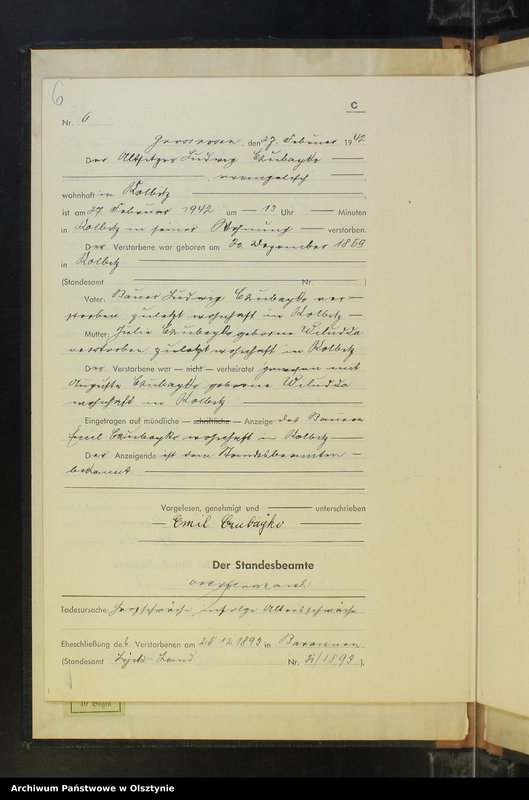 6
C
Nr. 6
den 27. Februar 1942
Der Altsitzer Ludwig Czubayko
evangelisch,
wohnhaft in Kolbitz
ist am 27 Februar 1942 um 17 Uhr Minuten
in Kolbitz in seiner Wohnung verstorben.
Der Verstorbene war geboren am 30. Dezember 1859
in Kolbitz
(Standesamt Nr. )
Vater: Bauer Ludwig Czubayko ver-
storben zuletzt wohnhaft in Kolbitz
Mutter: Julie Czubayko geborene
verstorben zuletzt wohnhaft in Kolbitz
Der Verstorbene war — nicht — verheiratet gewesen mit
Auguste Czubayko geborene
wohnhaft in Kolbitz
Eingetragen auf mündliche — schriftliche — Anzeige des Bauern
Emil Czubayko wohnhaft in Kolbitz
Der Anzeigende ist dem Standesbeamten
bekannt.
Vorgelesen, genehmigt und unterschrieben
Emil Czubayko
Der Standesbeamte
Todesursache: Herzschwäche infolge Altersschwäche
Eheschließung des Verstorbenen am 25.12.1893 in Barannen
(Standesamt Lyck-Land Nr. /1893 ).
40 Bogen
Archiwum Państwowe w Olsztynie